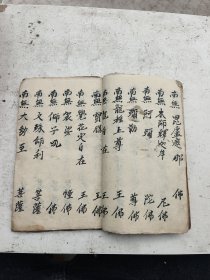 南無毘盧遮那佛
南無本師釋迦牟尼佛
南無阿彌陀佛
南無彌勒尊佛
南無龍種上尊王佛
南無龍自在王佛
南無寶勝王佛
南無覺花定自在王佛
南無袈裟幢佛
南無師子吼佛
南無文殊師利菩薩
南無大勢至菩薩